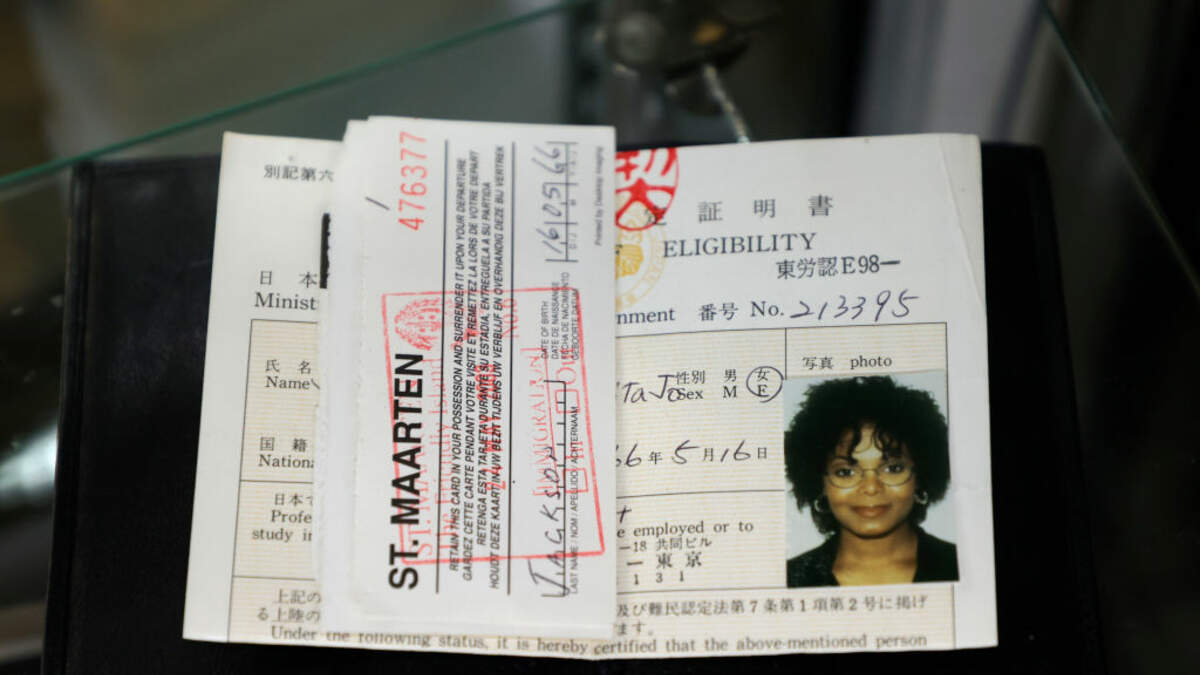 別記第六
定 証 明 書
ELIGIBILITY
東労認E98-
日 本
nment 番号 No. 213395
氏 名
Name
写真 photo
性別 男 女
Sex M F
国 籍
66年5月16日
日本で
e employed or to
study in
-18 共同ビル
東京
131
上記の
及び難民認定法第7条第1項第2号に掲げ
る上陸の
ます。
Under the following status, it is hereby certified that the above-mentioned person
ST. MAARTEN
476377
RETAIN THIS CARD IN YOUR POSSESSION AND SURRENDER IT UPON YOUR DEPARTURE
GARDEZ CETTE CARTE PENDANT VOTRE VISITE ET REMETTEZ LA LORS DE VOTRE DEPART
RETENGA ESTA TARJETA DURANTE SU ESTADIA, ENTREGUELA A SU PARTIDA
HOUDT DEZE KAART IN UW BEZIT TIJDENS UW VERBLIJF EN OVERHANDIG DEZE BIJ VERTREK
JACKSON
LAST NAME / NOM / APELLIDO / ACHTERNAAM
16 05 66
DATE OF BIRTH
DATE DE NAISSANCE
FECHA DE NACIMIENTO
GEBOORTE DATUM
Printed by Desktop Imaging
The Friendly Island
IMMIGRATION